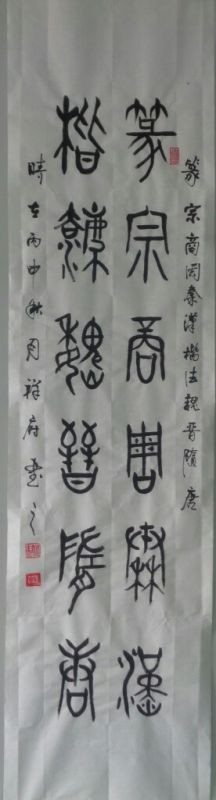 篆宗商周秦漢楷法魏晉隋唐
篆宗商周秦漢
楷法魏晉隋唐
時在丙申秋月祥府書之